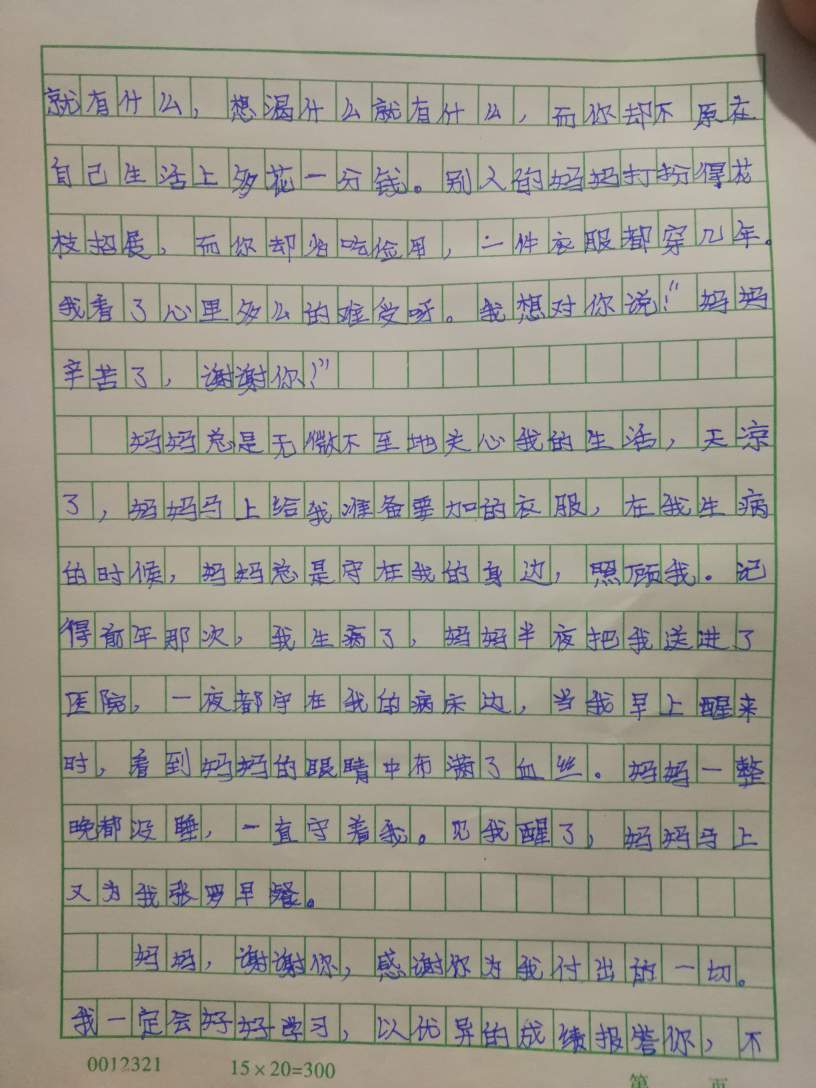 就有什么，想渴什么就有什么，而你却不原在
自己生活上多花一分钱。别人的妈妈打扮得花
枝招展，而你却省吃俭用，一件衣服都穿几年。
我看了心里多么的难受呀。我想对你说！“妈妈
辛苦了，谢谢你！”
妈妈总是无微不至地关心我的生活，天凉
了，妈妈马上给我准备要加的衣服，在我生病
的时候，妈妈总是守在我的身边，照顾我。记
得前年那次，我生病了，妈妈半夜把我送进了
医院，一夜都守在我的病床边，当我早上醒来
时，看到妈妈的眼睛中布满了血丝。妈妈一整
晚都没睡，一直守着我。见我醒了，妈妈马上
又为我张罗早餐。
妈妈，谢谢你，感谢你为我付出的一切。
我一定会好好学习，以优异的成绩报答你，不
0012321 15×20=300 第 页